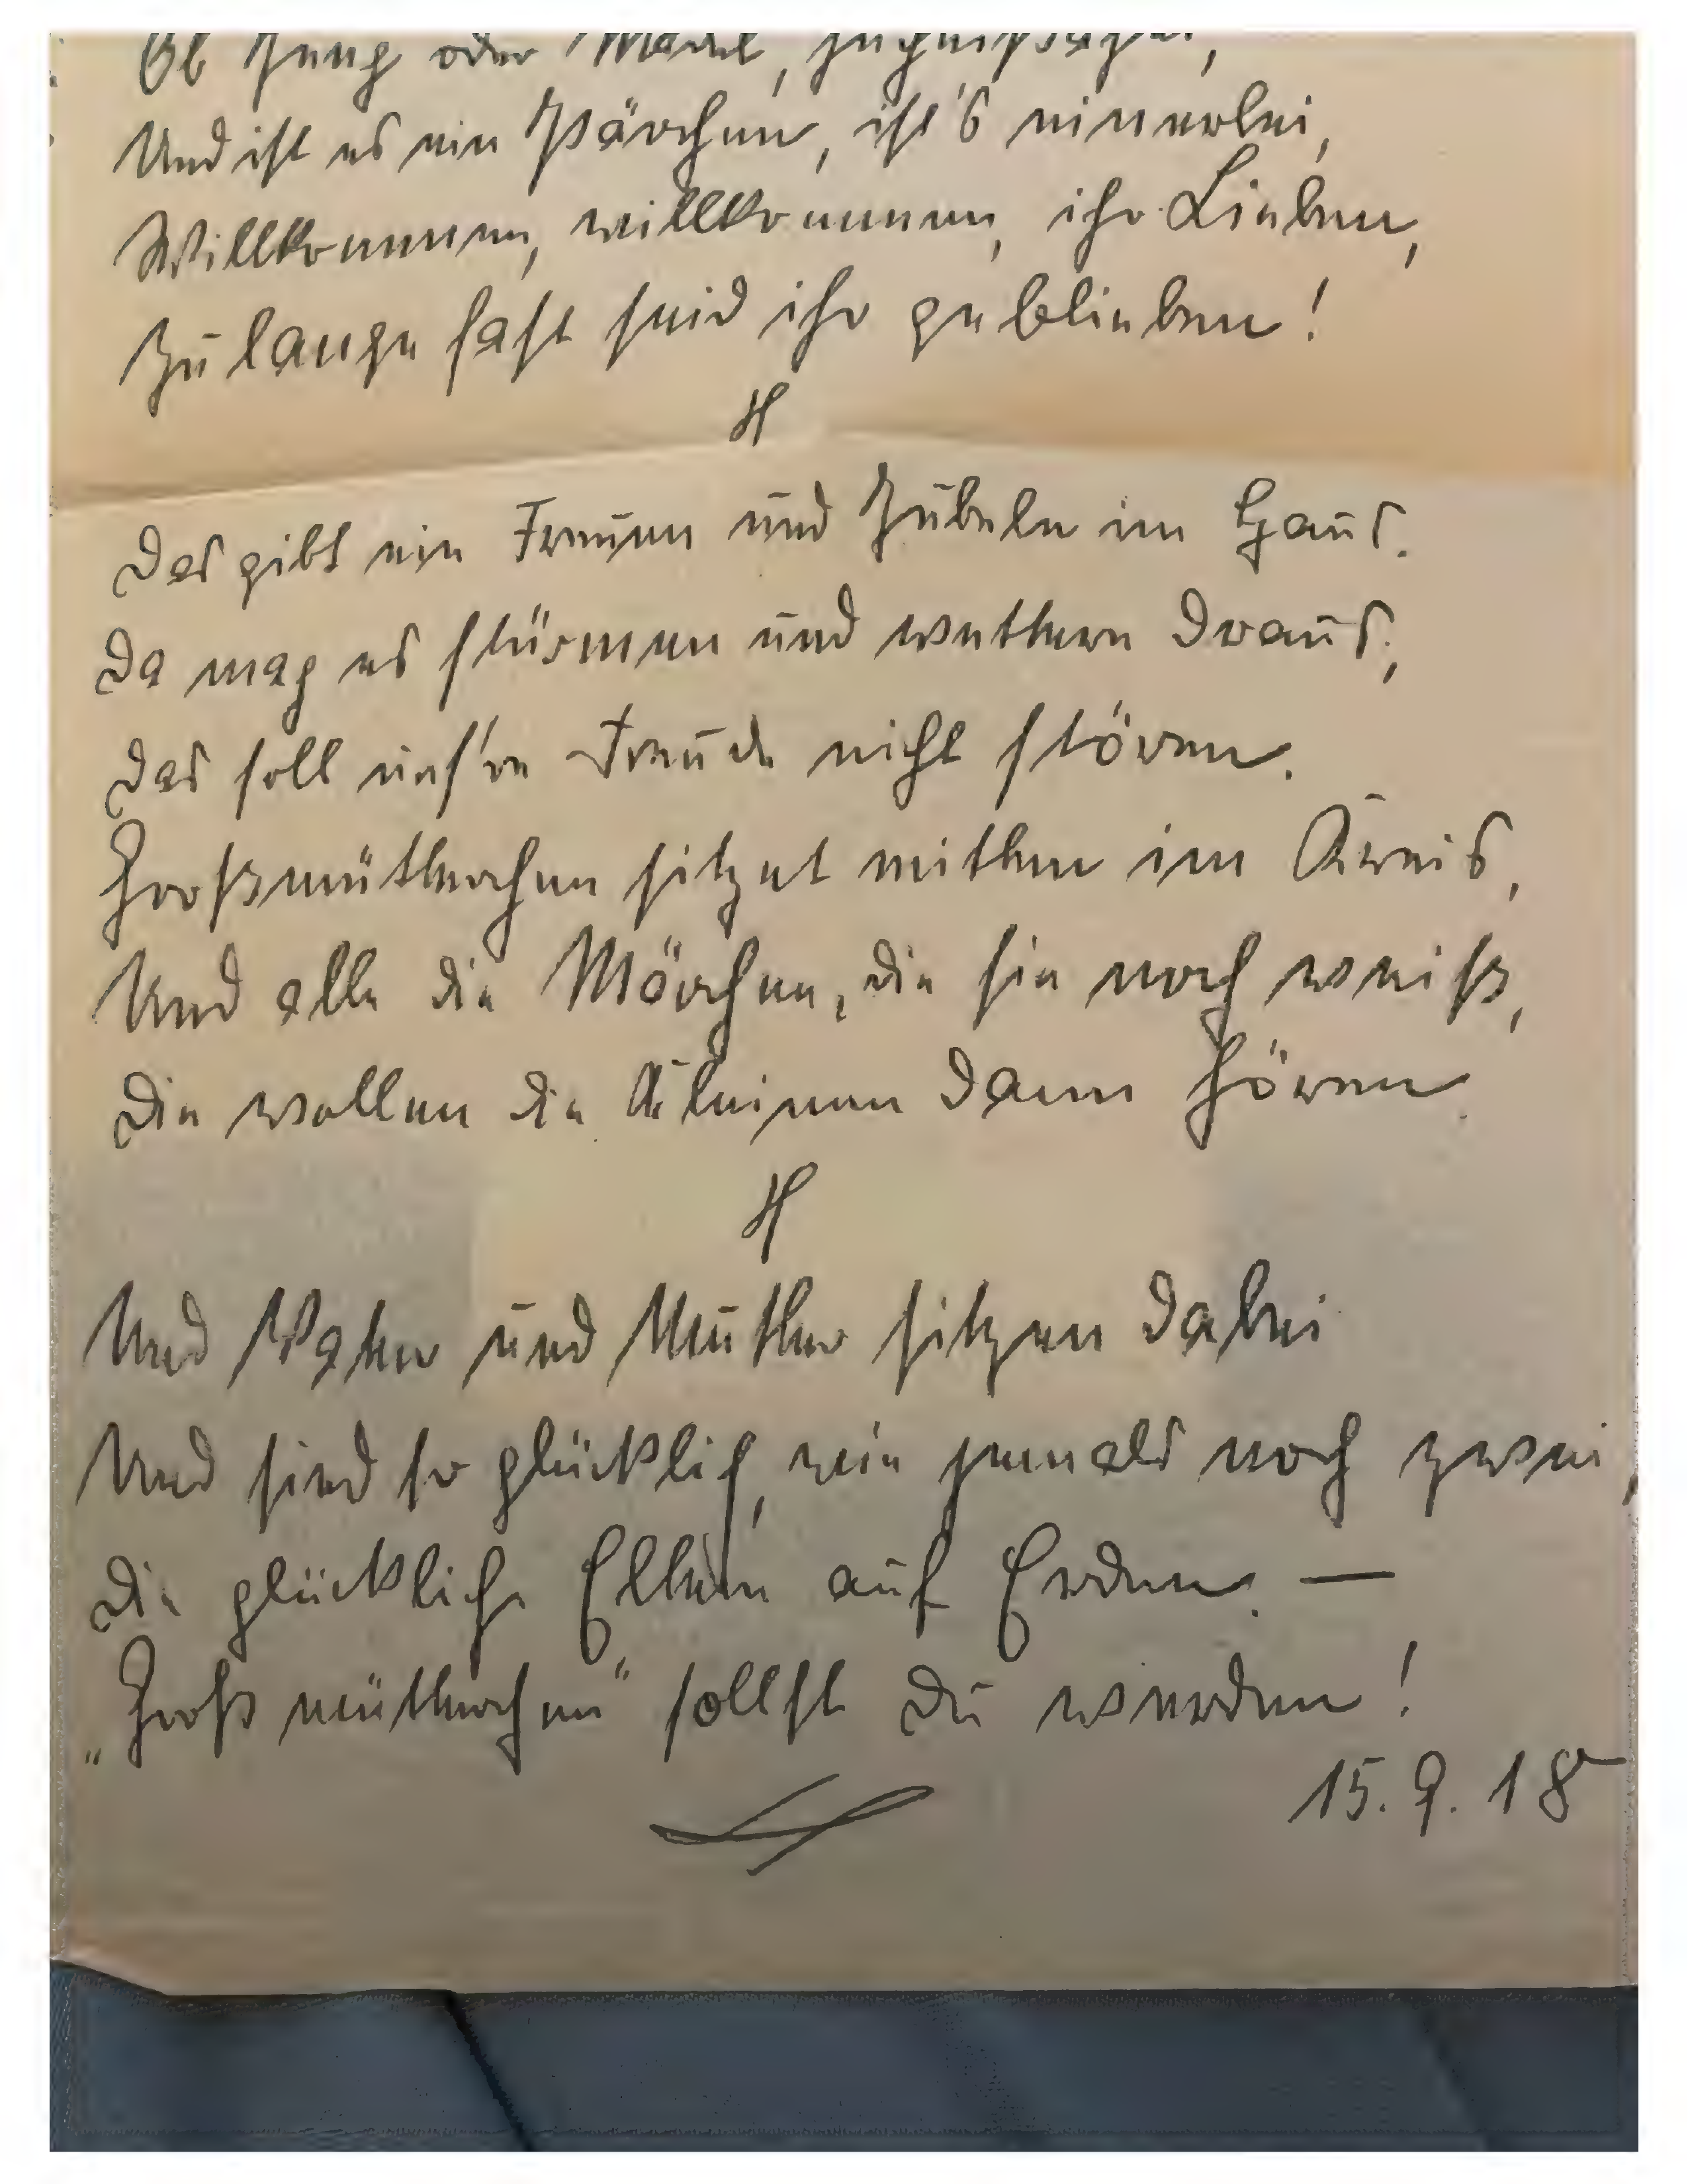 Ob Jung oder Mädel,
Und ist es ein Pärchen, ist's einerlei,
Willkommen, willkommen, ihr Lieben,
Zu lange fast seid ihr geblieben!
Das gibt ein Freuen und Jubeln im Haus.
Da mag es stürmen und wettern draus,
Das soll uns're Freude nicht stören.
Großmütterchen sitzet mitten im Kreis,
Und alle die Märchen, die sie noch weiß,
Die wollen die Kleinen dann hören.
Und Vater und Mutter sitzen dabei
Und sind so glücklich, wie jemals noch zwei,
Die glückliche Eltern auf Erden. —
„Großmütterchen" sollst Du werden!
15. 9. 18